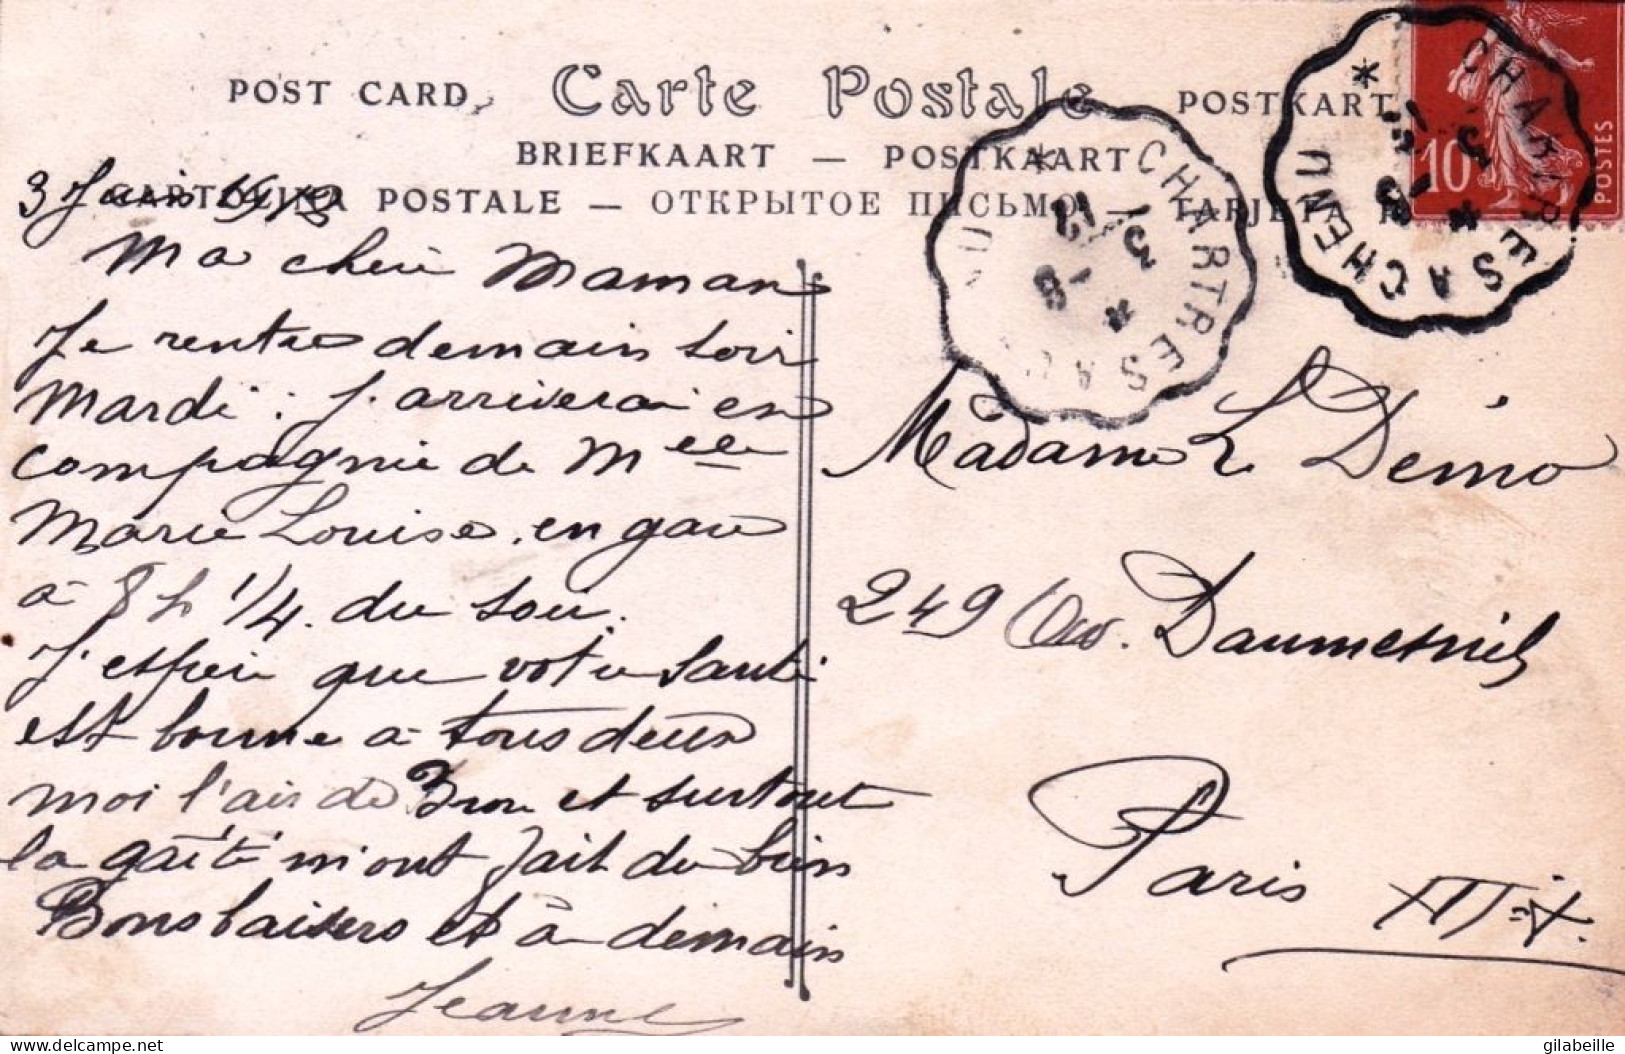 POST CARD Carte Postale POSTKARTE
BRIEFKAART — POSTKAART
CARTOLINA POSTALE — ОТКРЫТОЕ ПИСЬМО — TARJETA
CHARTRES A CHENU
CHARTRES A
10
POSTES
3 Juin 1912
Ma chère Maman
Je rentre demain soir
Mardi : j'arriverai en
compagnie de Melle
Marie Louise. en gare
à 8 h 1/4. du soir.
J'espère que votre santé
est bonne à tous deux
moi l'air de Brou et surtout
la gaîté m'ont fait du bien
Bons baisers et à demain
Jeanne
Madame L.
249 Av. Daumesnil
Paris
XIIe
delcampe.net
gilabeille